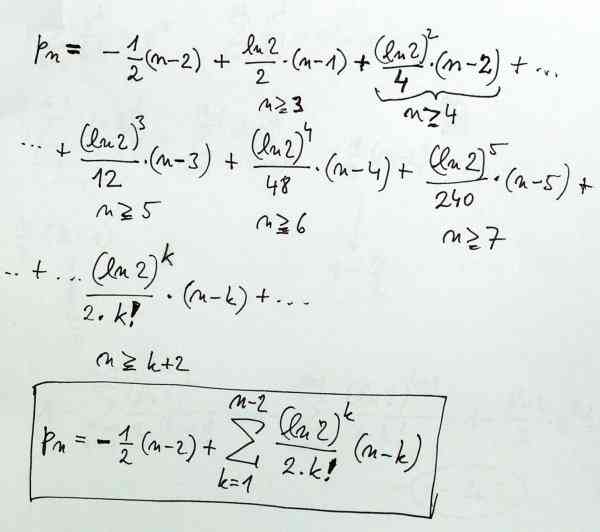 pn = -1/2 (n-2) + ln2/2 · (n-1) + (ln2)^2/4 · (n-2) + ...
n≥3 n≥4
... + (ln2)^3/12 · (n-3) + (ln2)^4/48 · (n-4) + (ln2)^5/240 · (n-5) +
n≥5 n≥6 n≥7
.. + ... (ln2)^k/2·k! · (n-k) + ...
n≥k+2
pn = -1/2 (n-2) + ∑_{k=1}^{n-2} (ln2)^k/2·k! (n-k)